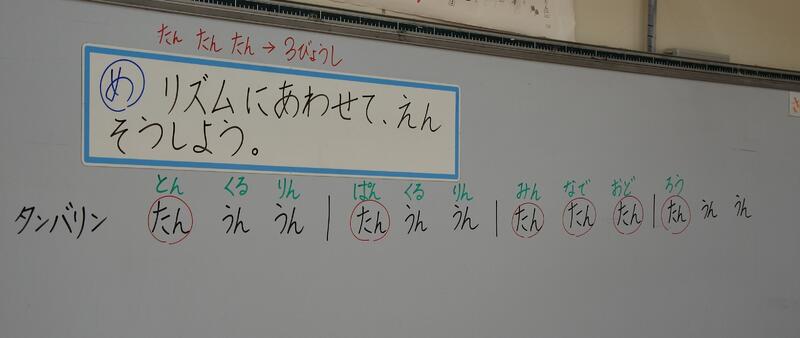 たん たん たん → 3びょうし
め リズムにあわせて、えん
そうしよう。
とん くる りん ぱん くる りん みん なで おど ろう
タンバリン たん うん うん | たん うん うん | たん たん たん | たん うん うん